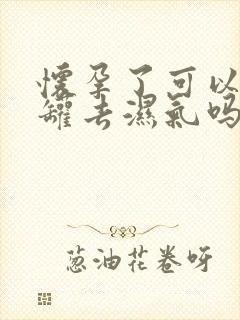 懷孕了可以
罐去濕氣吗
葱油花卷呀